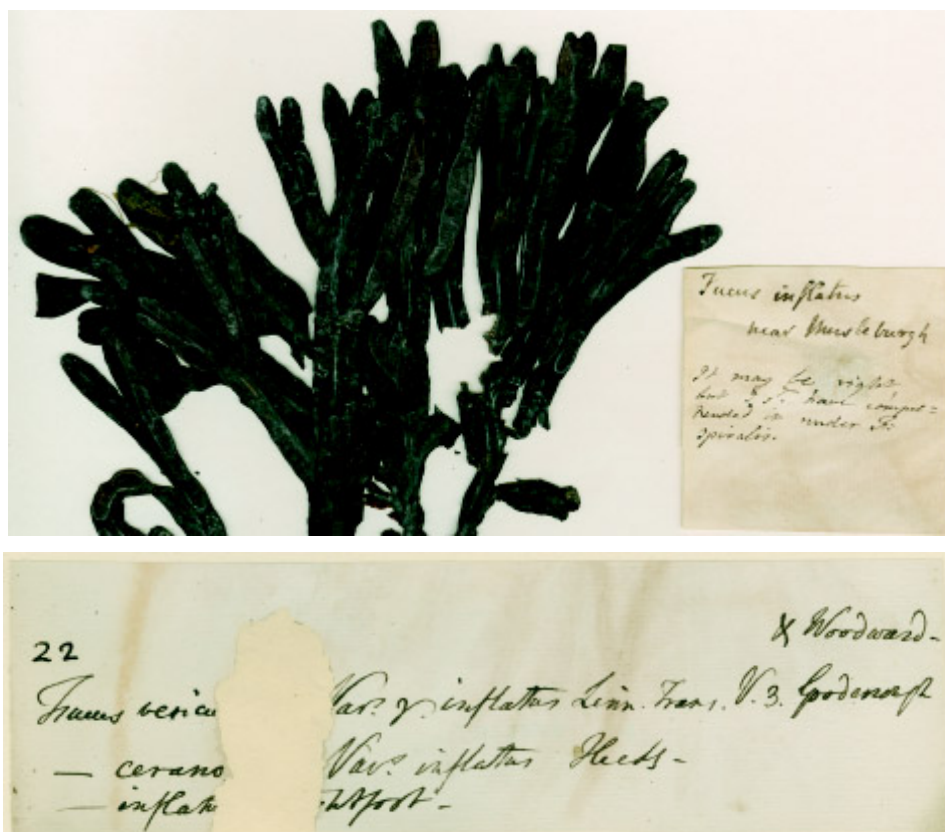 Fucus inflatus
near Mussleburgh
It may be right
but I sd. have compre=
hended it under F.
spiralis.
& Woodward-
22
Fucus vesicu Var. γ. inflatus Linn. Trans. V. 3. Goodenough
— cerano Var. inflatus Huds-
— inflatu htfoot-